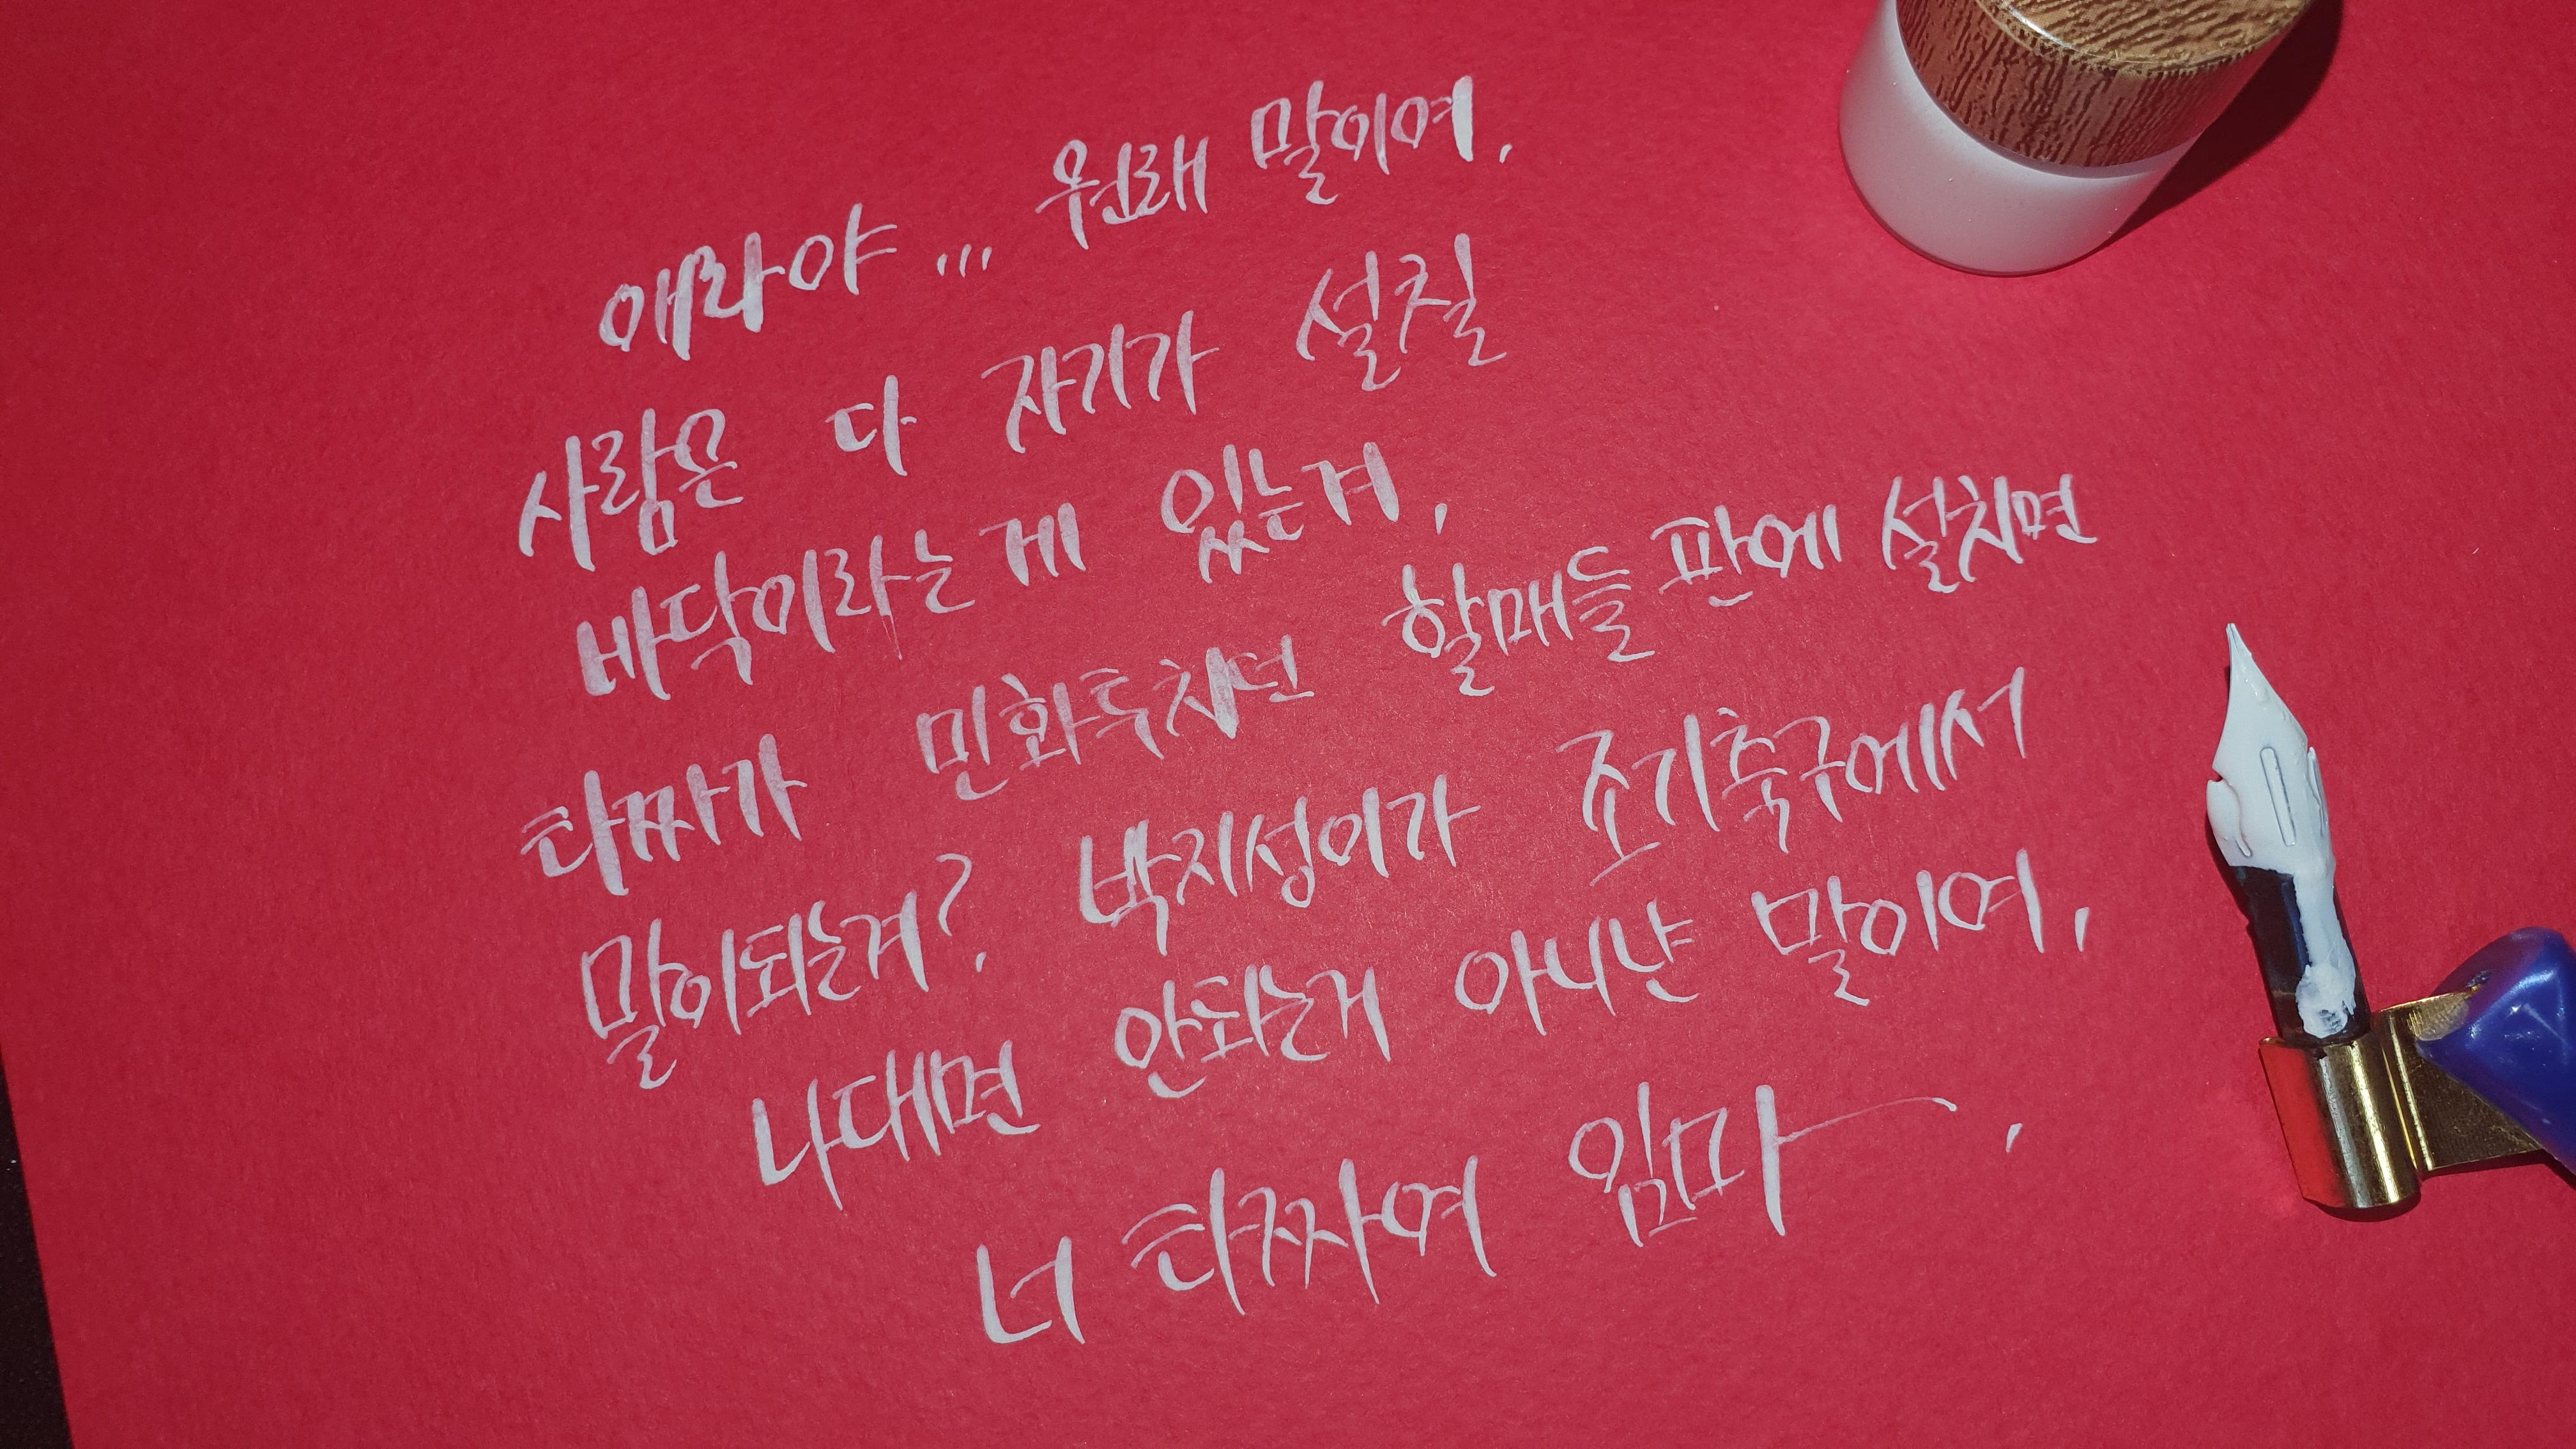 애라야... 원래 말이여.
사람은 다 자기가 설칠
바닥이라는게 있는겨.
타짜가 민화투치던 할매들 판에 설치면
말이되는겨?. 박지성이가 조기축구에서
나대면 안되는거 아니냔 말이여.
너 타짜여 임마.